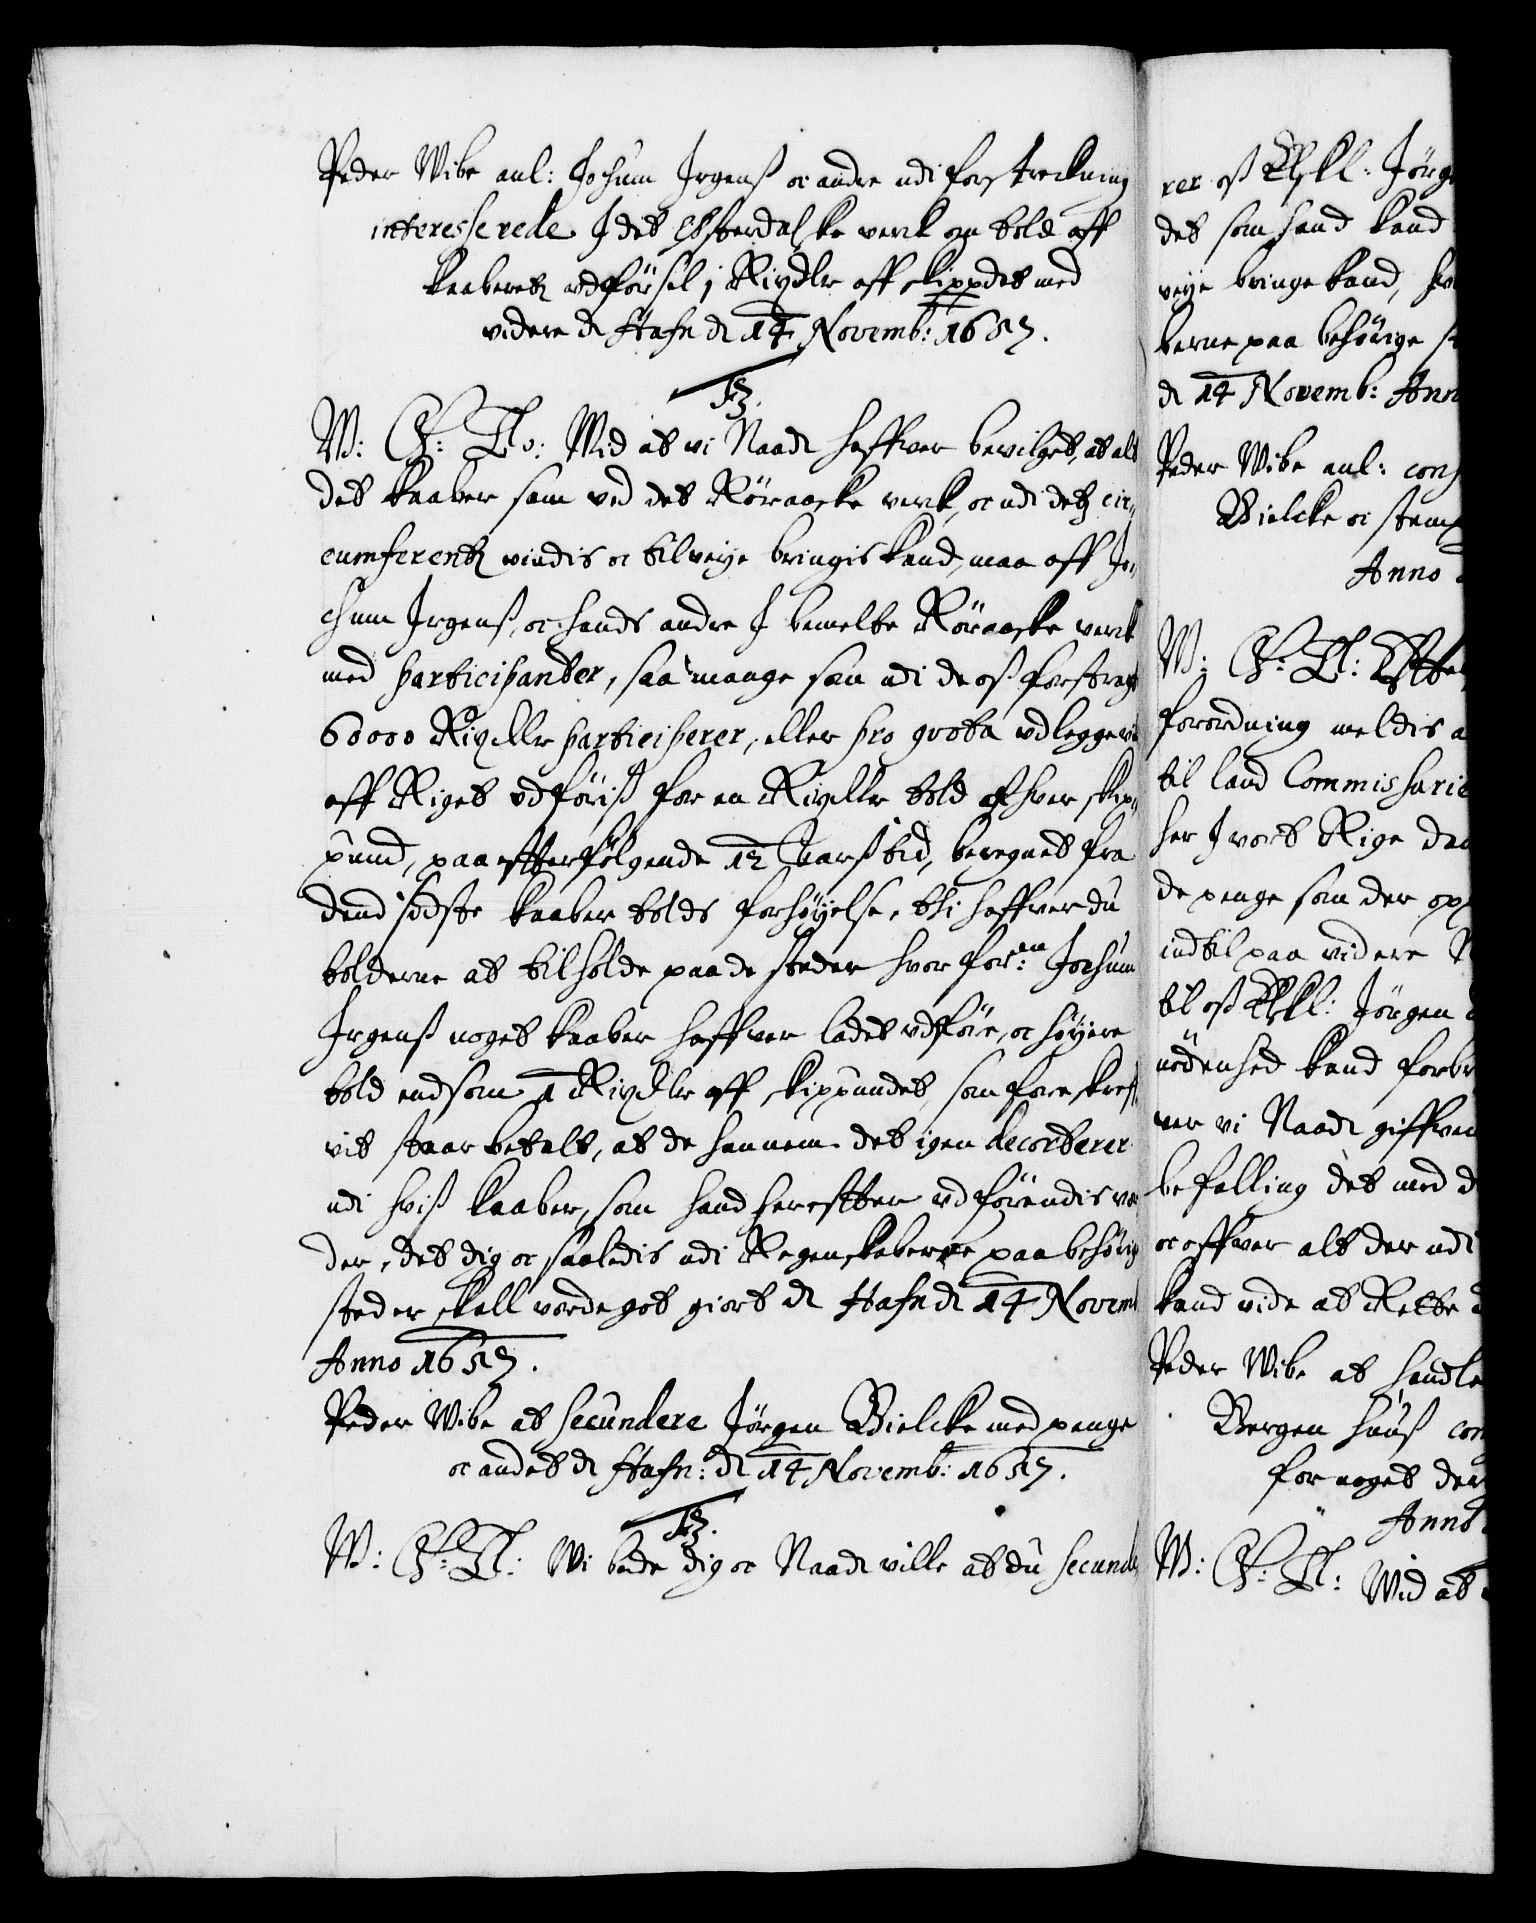 Peder Wibe anl: Jochum Jrgenß oc andre udi forstreckning
interesserede J det Østerdalske verck om told aff
kaaberetz udførsel 1 Rixdlr aff skippdet med
videre dt Hafn dt 14 Novemb: 1657.
F3.
W: G: T: Wid at vi Naadt haffver bevilget, at alt
det kaaber som ved det Röraaske verck, oc udi detz cir„
cumferentz vindis oc tilveÿe bringis kand, maa aff Jo„
chum Jrgenß, oc hands andre J bemelte Röraaske verck
med participanter, saa mange som udi de oß forstragte
60000 Rixdlr participerer, eller pro qvota udlegger
aff Riget udföriß for en Rixdlr told af hver skip„
pund, paa effterfölgende 12 Aarß tid, beregnet fra
dend sidste kaaber tolds forhöÿelse, thi haffver du
tolderne at tilholde paa de steder hvor for:ne Jochum
Jrgenß noget kaaber haffver ladet udföre, oc höÿere
told end som 1 Rixdlr aff skippundet, som foreskref„
vit staar betalt, at de hannem det igen decorterer
udi hviß kaaber, som hand hereffter udförendis vor„
der, det dig oc saaledis udi Regenskaberne paa behörig
steder skall vorde got giort dt Hafn dt 14 Novemb
Anno 1657.
Peder Wibe at secundere Jörgen Bielcke med penge
oc andet dt Hafn: dt 14 Novemb: 1657.
F3.
W: G: T: Wi bede dig oc Naadt ville at du secunde
rer oß Elskl: Jörg
det som hand kand
veÿe bringe kand, hv
berne paa behörige st
dt 14 Novemb: Ann
Peder Wibe anl:
Bielcke oc
Anno
W: G: T: Effte
forordning meldis a
til land Commissarie
her J vort Rige
de penge som der op
indtil paa videre
til oß Elskl: Jörgen
nödenhed kand forbr
ver vi Naadt giffven
befalling det med d
oc offver alt der udi
kand vide at Rette
Peder Wibe at handle
Bergen huuß
for noget der
Anno
W: G: T: Wid at